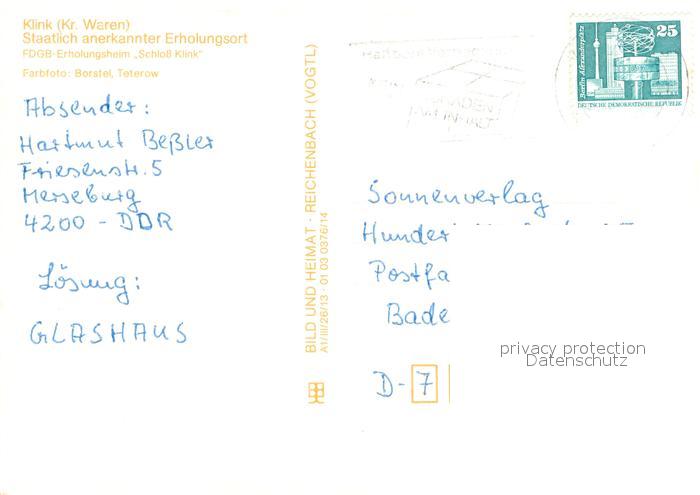 Klink (Kr. Waren)
Staatlich anerkannter Erholungsort
FDGB-Erholungsheim „Schloß Klink"
Farbfoto: Borstel, Teterow
Absender:
Hartmut Beßler
Friesenstr. 5
Merseburg
4200 - DDR
Lösung:
GLASHAUS
BILD UND HEIMAT · REICHENBACH (VOGTL)
A1/III/26/13 · 01 03 0376/14
Berlin, Alexanderplatz
25
DEUTSCHE DEMOKRATISCHE REPUBLIK
Sonnenverlag
Hunder
Postfa
Bade
D - 7
privacy protection
Datenschutz